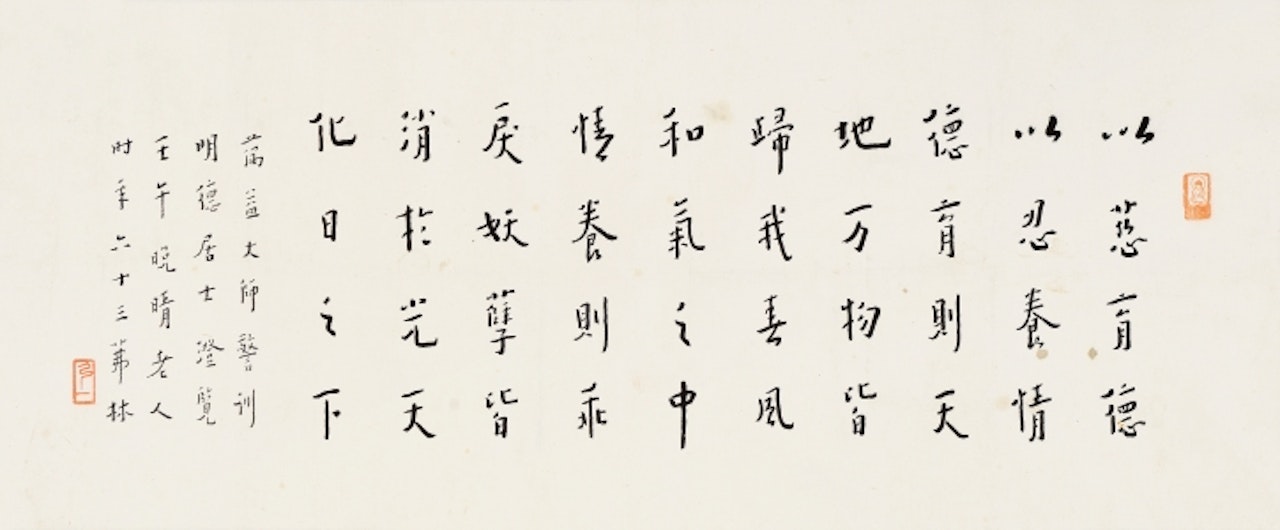 以慈育德
以忍養情
德育則天
地万物皆
歸我春風
和氣之中
情養則乖
戾妖孽皆
消於光天
化日之下
蕅益大師警訓
明德居士 澄覽
壬午晚晴老人
时年六十三茀林
弘一